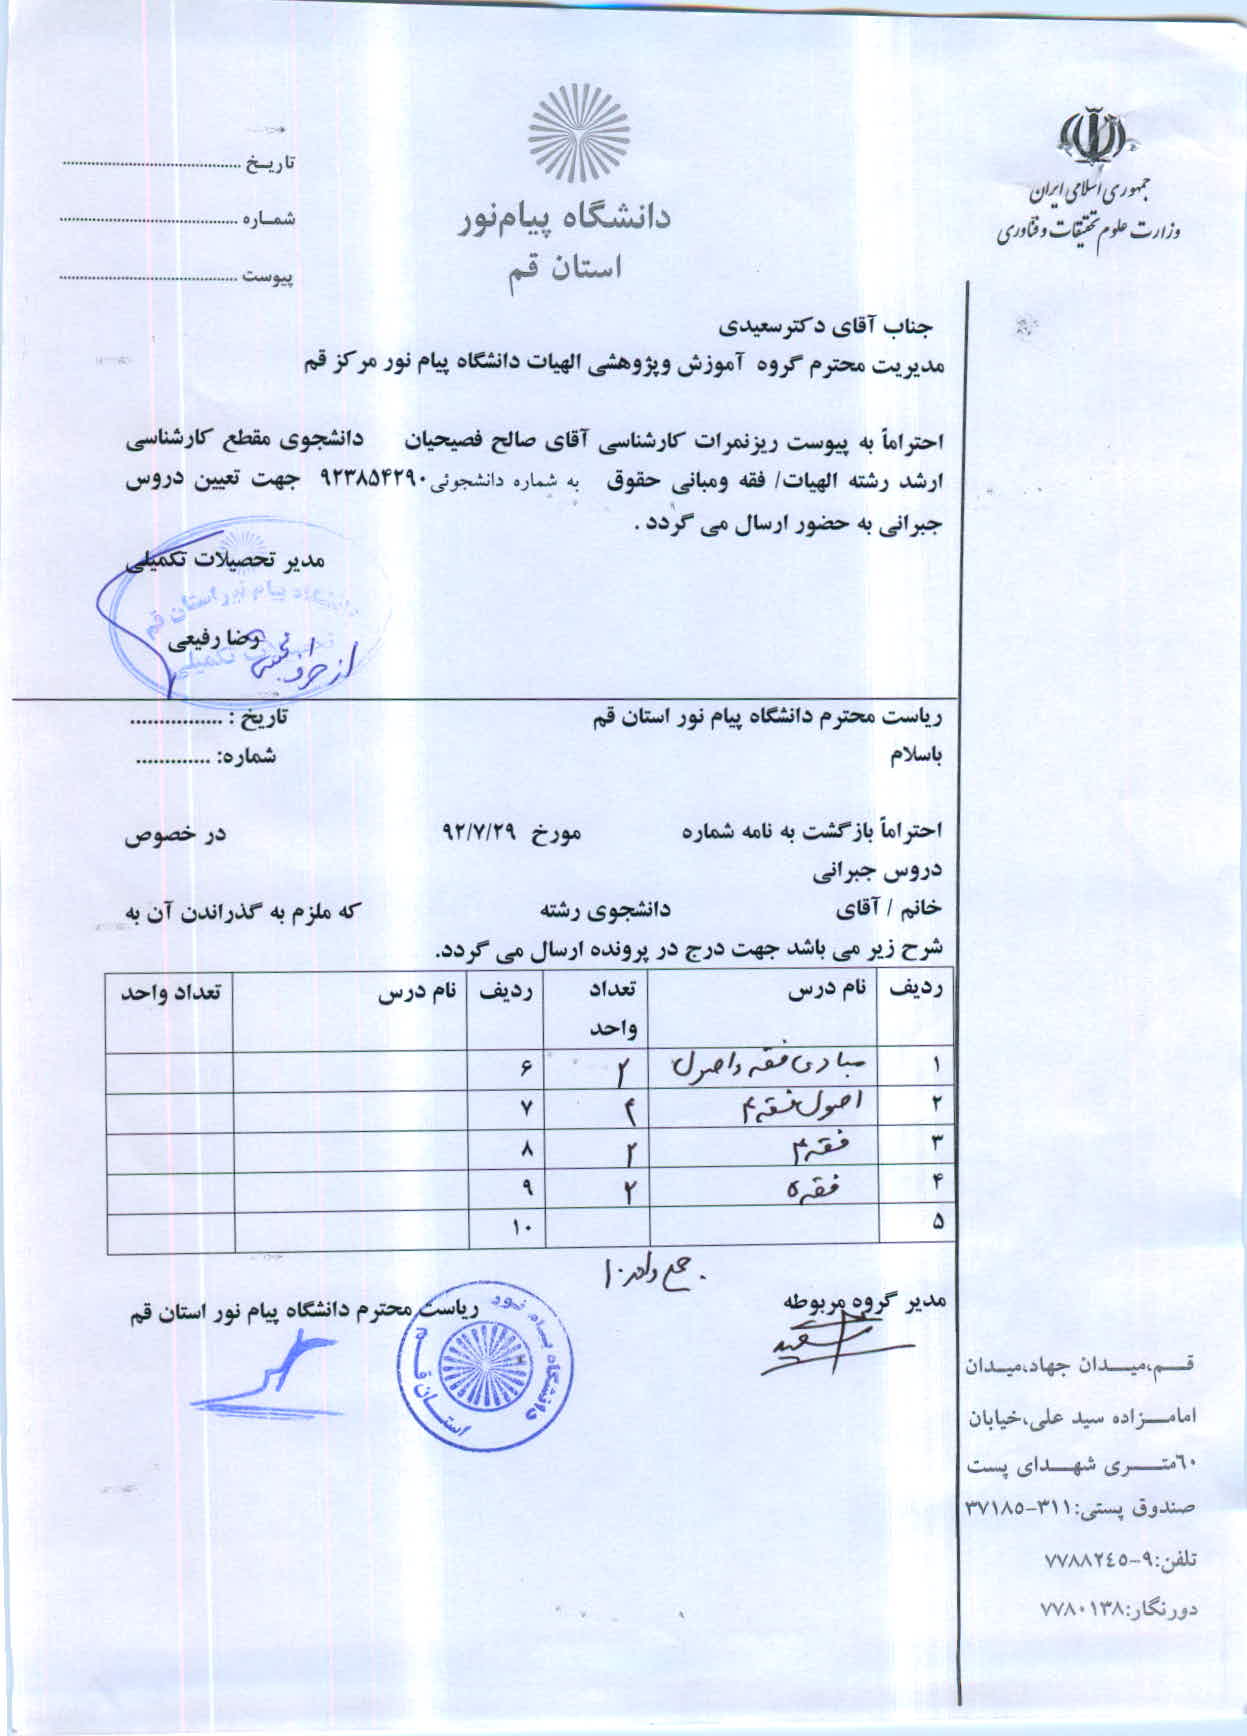 جمهوری اسلامی ایران
وزارت علوم تحقیقات و فناوری
دانشگاه پیام‌نور
استان قم
تاریخ ......................................
شماره ......................................
پیوست ......................................
جناب آقای دکترسعیدی
مدیریت محترم گروه آموزش وپژوهشی الهیات دانشگاه پیام نور مرکز قم
احتراماً به پیوست ریزنمرات کارشناسی آقای صالح فصیحیان دانشجوی مقطع کارشناسی
ارشد رشته الهیات/ فقه ومبانی حقوق به شماره دانشجوئی ۹۲۳۸۵۴۲۹۰ جهت تعیین دروس
جبرانی به حضور ارسال می گردد .
مدیر تحصیلات تکمیلی
رضا رفیعی
از طرف
دانشگاه پیام نور استان قم
تحصیلات تکمیلی
ریاست محترم دانشگاه پیام نور استان قم تاریخ : ................
باسلام شماره: .............
احتراماً بازگشت به نامه شماره مورخ ۹۲/۷/۲۹ در خصوص
دروس جبرانی
خانم / آقای دانشجوی رشته که ملزم به گذراندن آن به
شرح زیر می باشد جهت درج در پرونده ارسال می گردد.
ردیف نام درس تعداد واحد ردیف نام درس تعداد واحد
۱ مبادی فقه و اصول ۲ ۶
۲ اصول فقه ۴ ۴ ۷
۳ فقه ۴ ۲ ۸
۴ فقه ۵ ۲ ۹
۵ ۱۰
جمع واحد ۱۰
مدیر گروه مربوطه ریاست محترم دانشگاه پیام نور استان قم
سعیدی
دانشگاه پیام نور
استان قم
قم،میدان جهاد،میدان
امامزاده سید علی،خیابان
۶۰متری شهدای پست
صندوق پستی:۳۱۱-۳۷۱۸۵
تلفن:۹-۷۷۸۸۲٤٥
دورنگار:۷۷۸۰۱۳۸